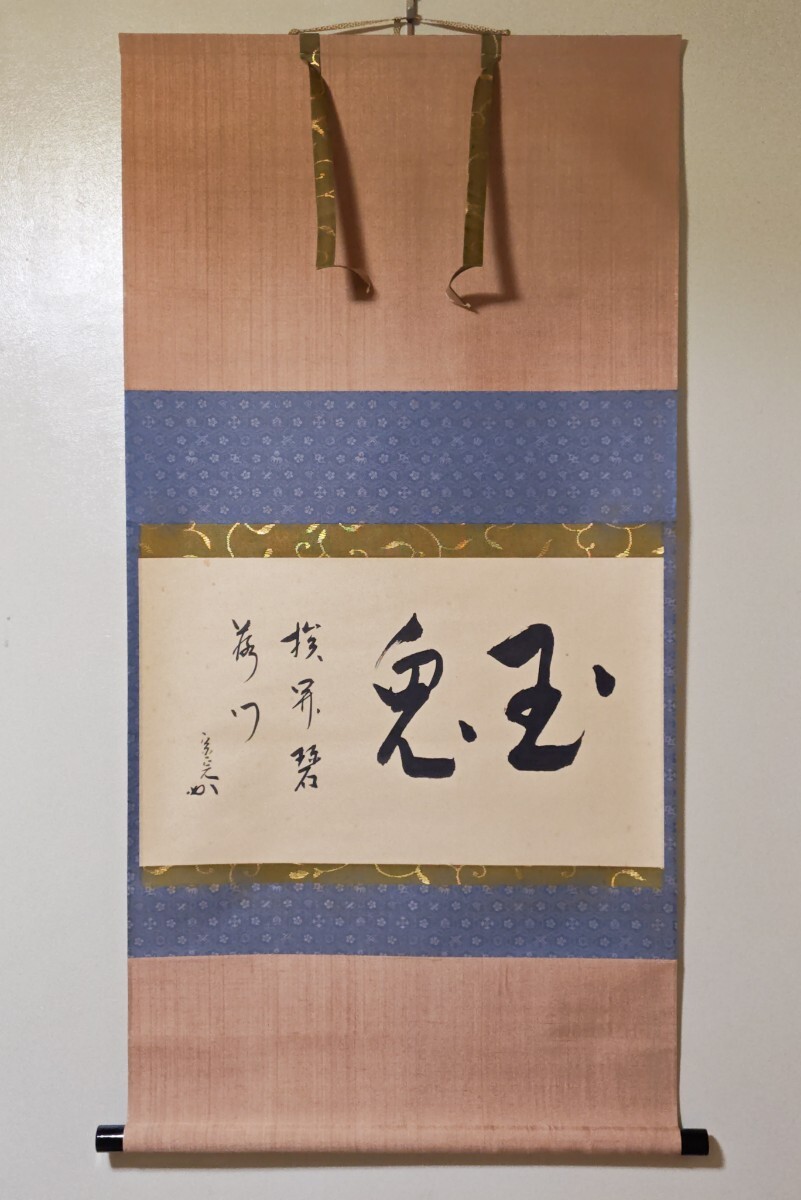 玉兎
挨開碧
落門